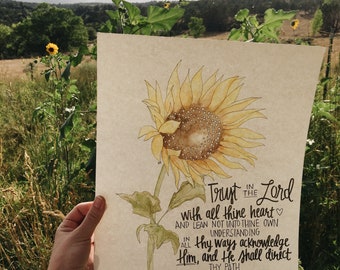 Trust IN THE Lord
with all thine heart
AND LEAN NOT UNTO THINE OWN
UNDERSTANDING
IN ALL thy ways acknowledge
Him, and He shall direct
THY PATH